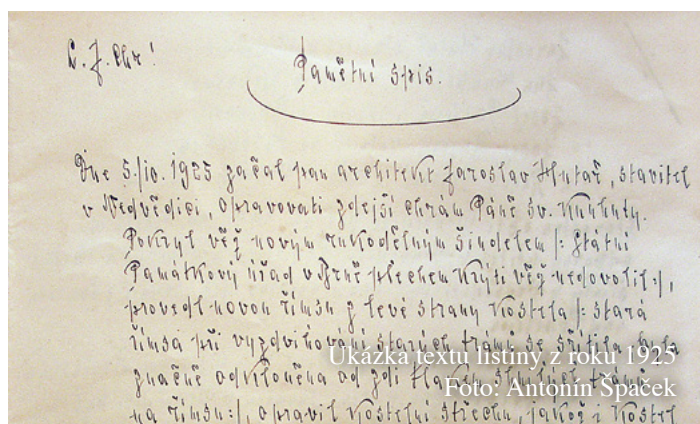 L. J. Chr!
Pamětní spis.
Dne 5./10. 1925 začal pan architekt Jaroslav Hutař, stavitel
v Nedvědici, opravovati zdejší chrám Páně sv. Kunhuty.
Pokryl věž novým rukodělným šindelem /: Státní
Památkový úřad v Brně plechem krýti věž nedovolil :/,
provedl novou římsu z levé strany kostela /: stará
římsa při vyzdvihování starých trámů se sřítila, byla
značně odkloněna od zdi tlakem shnilých trámů
na římsu :/, opravil kostelní střechu, jakož i kostel
Ukázka textu listiny z roku 1925
Foto: Antonín Špaček